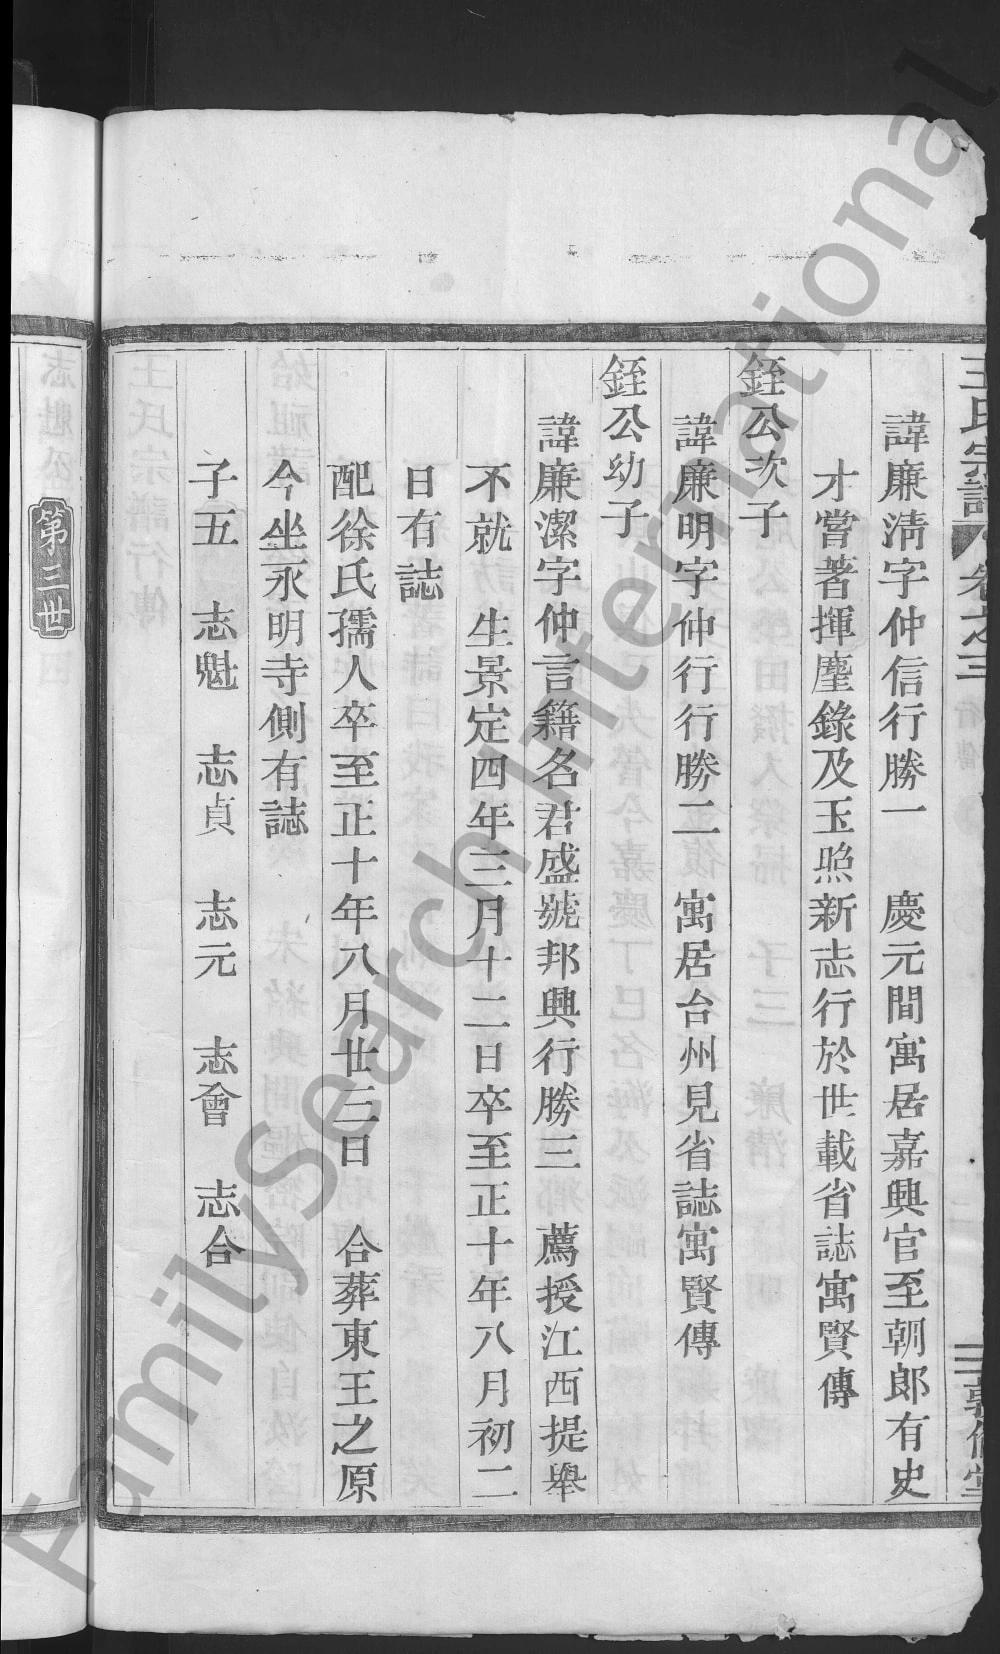 王氏宗譜 卷之三 行傳 三 敦倫堂
諱廉淸字仲信行勝一 慶元間寓居嘉興官至朝郎有史
才嘗著揮麈錄及玉照新志行於世載省誌寓賢傳
銍公次子
諱廉明字仲行行勝二 寓居台州見省誌寓賢傳
銍公幼子
諱廉潔字仲言籍名君盛號邦興行勝三 薦授江西提舉
不就 生景定四年三月十二日卒至正十年八月初二
日有誌
配徐氏孺人卒至正十年八月廿三日 合葬東王之原
今坐永明寺側有誌
子五 志魁 志貞 志元 志會 志合
第三世
FamilySearch International